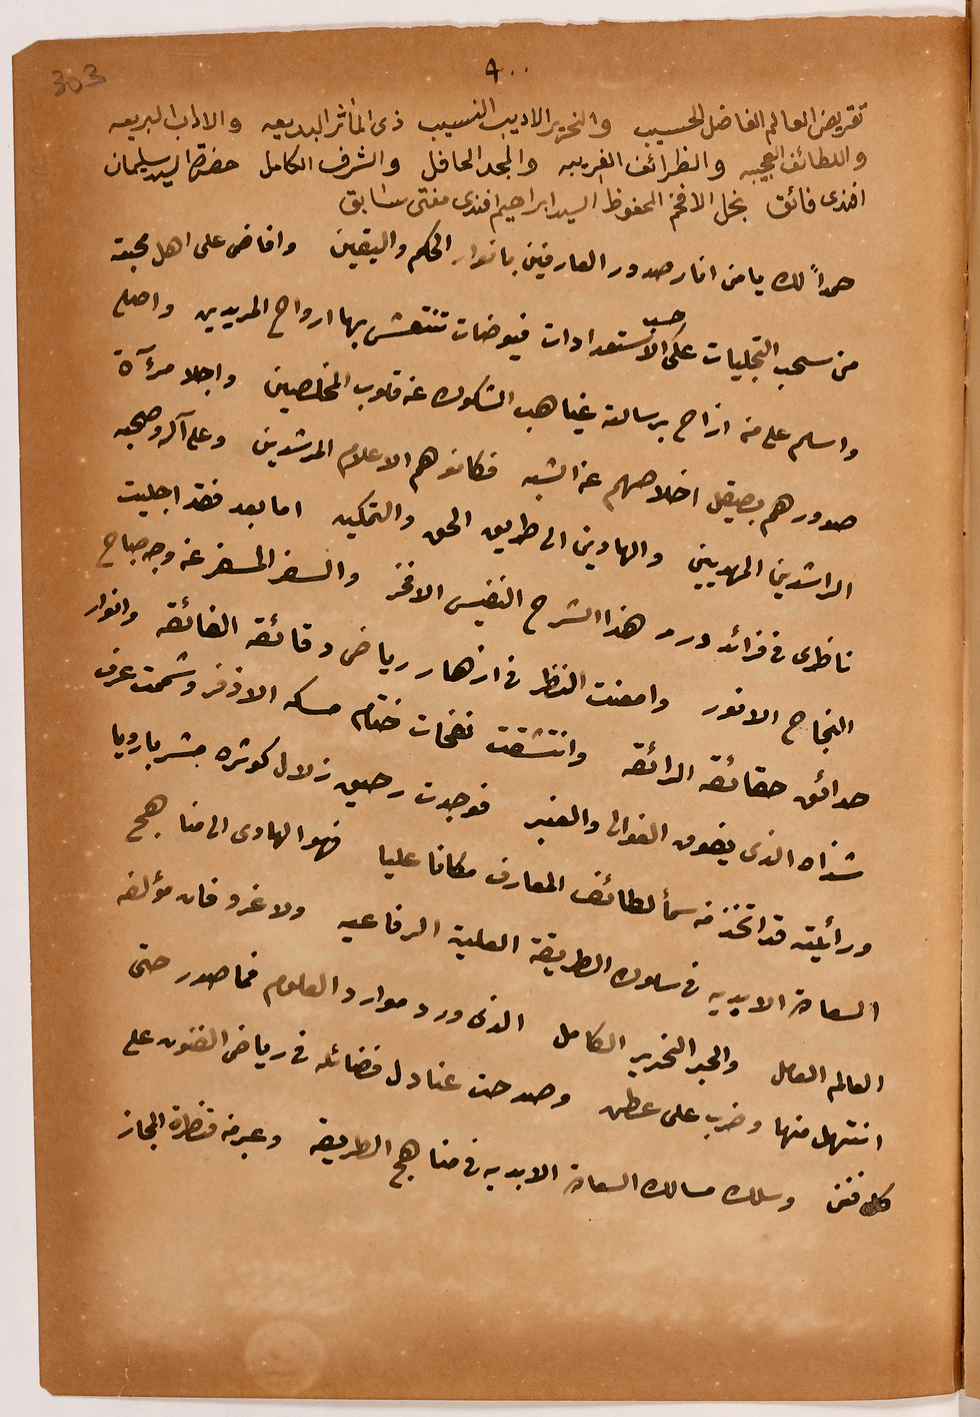 303
٨٠٠
تقريض العالم الفاضل الحسيب والنحرير الاديب النسيب ذى المآثر البديعه والاداب البريعه
واللطائف العجيبه والظرائف الغريبه والمجد الحافل والشرف الكامل حضرة السيد سليمان
افندى فائق نجل الافخم المحفوظ السيد ابراهيم افندى مفتى سابق
حمداً لك يا من انار صدور العارفين بانوار الحكم واليقين وافاض على اهل محبته
من سحب التجليات على حسب الاستعدادات فيوضات تنتعش بها ارواح المريدين واصلى
واسلم على من ازاح برسالته غياهب الشكوك عن قلوب المخلصين واجلا مرآة
صدورهم بصيقل اخلاصهم عن الشبه فكانوا هم الاعلام المرشدين وعلى آله وصحبه
الراشدين المهديين والهادين الى طريق الحق والتمكين اما بعد فقد اجليت
ناظرى فى فرائد درر هذا الشرح النفيس الافخر والسفر المسفر عن وجه صباح
النجاح الانور وامعنت النظر فى ازهار رياض دقائقه الفائقه وانوار
حدائق حقائقه الرائقه وانتشقت نفحات ختام مسكه الاذفر وشممت عرف
شذاه الذى يفوق الغوالى والعنبر فوجدت رحيق زلال كوثره مشربا رويا
ورائيته قد اتخذ من سمأ لطائف المعارف مكانا عليا فهو الهادى الى مناهج
السعادة الابديه فى سلوك الطريقة العلية الرفاعيه ولا غرو فان مؤلفه
العالم العامل والحبر النحرير الكامل الذى ورد موارد العلوم فما صدر حتى
انتهل منها وضرب على عطن وصدحت عنادل فضائله فى رياض الفنون على
كل فنن وسلك مسالك السعادة الابديه فى مناهج الطريقه وعبر من قنطرة المجاز